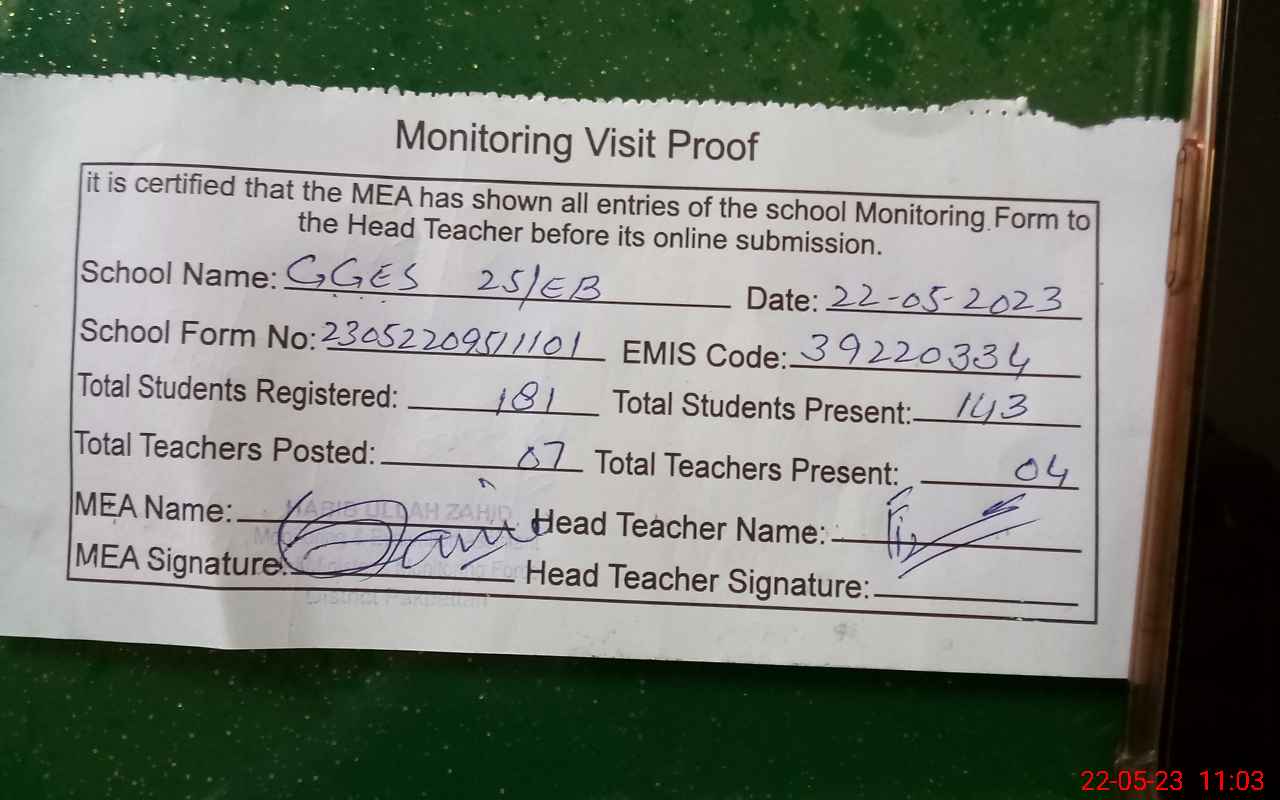 Monitoring Visit Proof
it is certified that the MEA has shown all entries of the school Monitoring Form to
the Head Teacher before its online submission.
School Name: GGES 25/EB Date: 22-05-2023
School Form No: 23052209511101 EMIS Code: 39220334
Total Students Registered: 181 Total Students Present: 143
Total Teachers Posted: 07 Total Teachers Present: 04
MEA Name: HABIB ULLAH ZAHID Head Teacher Name:
MEA Signature: Monitoring Head Teacher Signature:
District Pakpattan
22-05-23 11:03